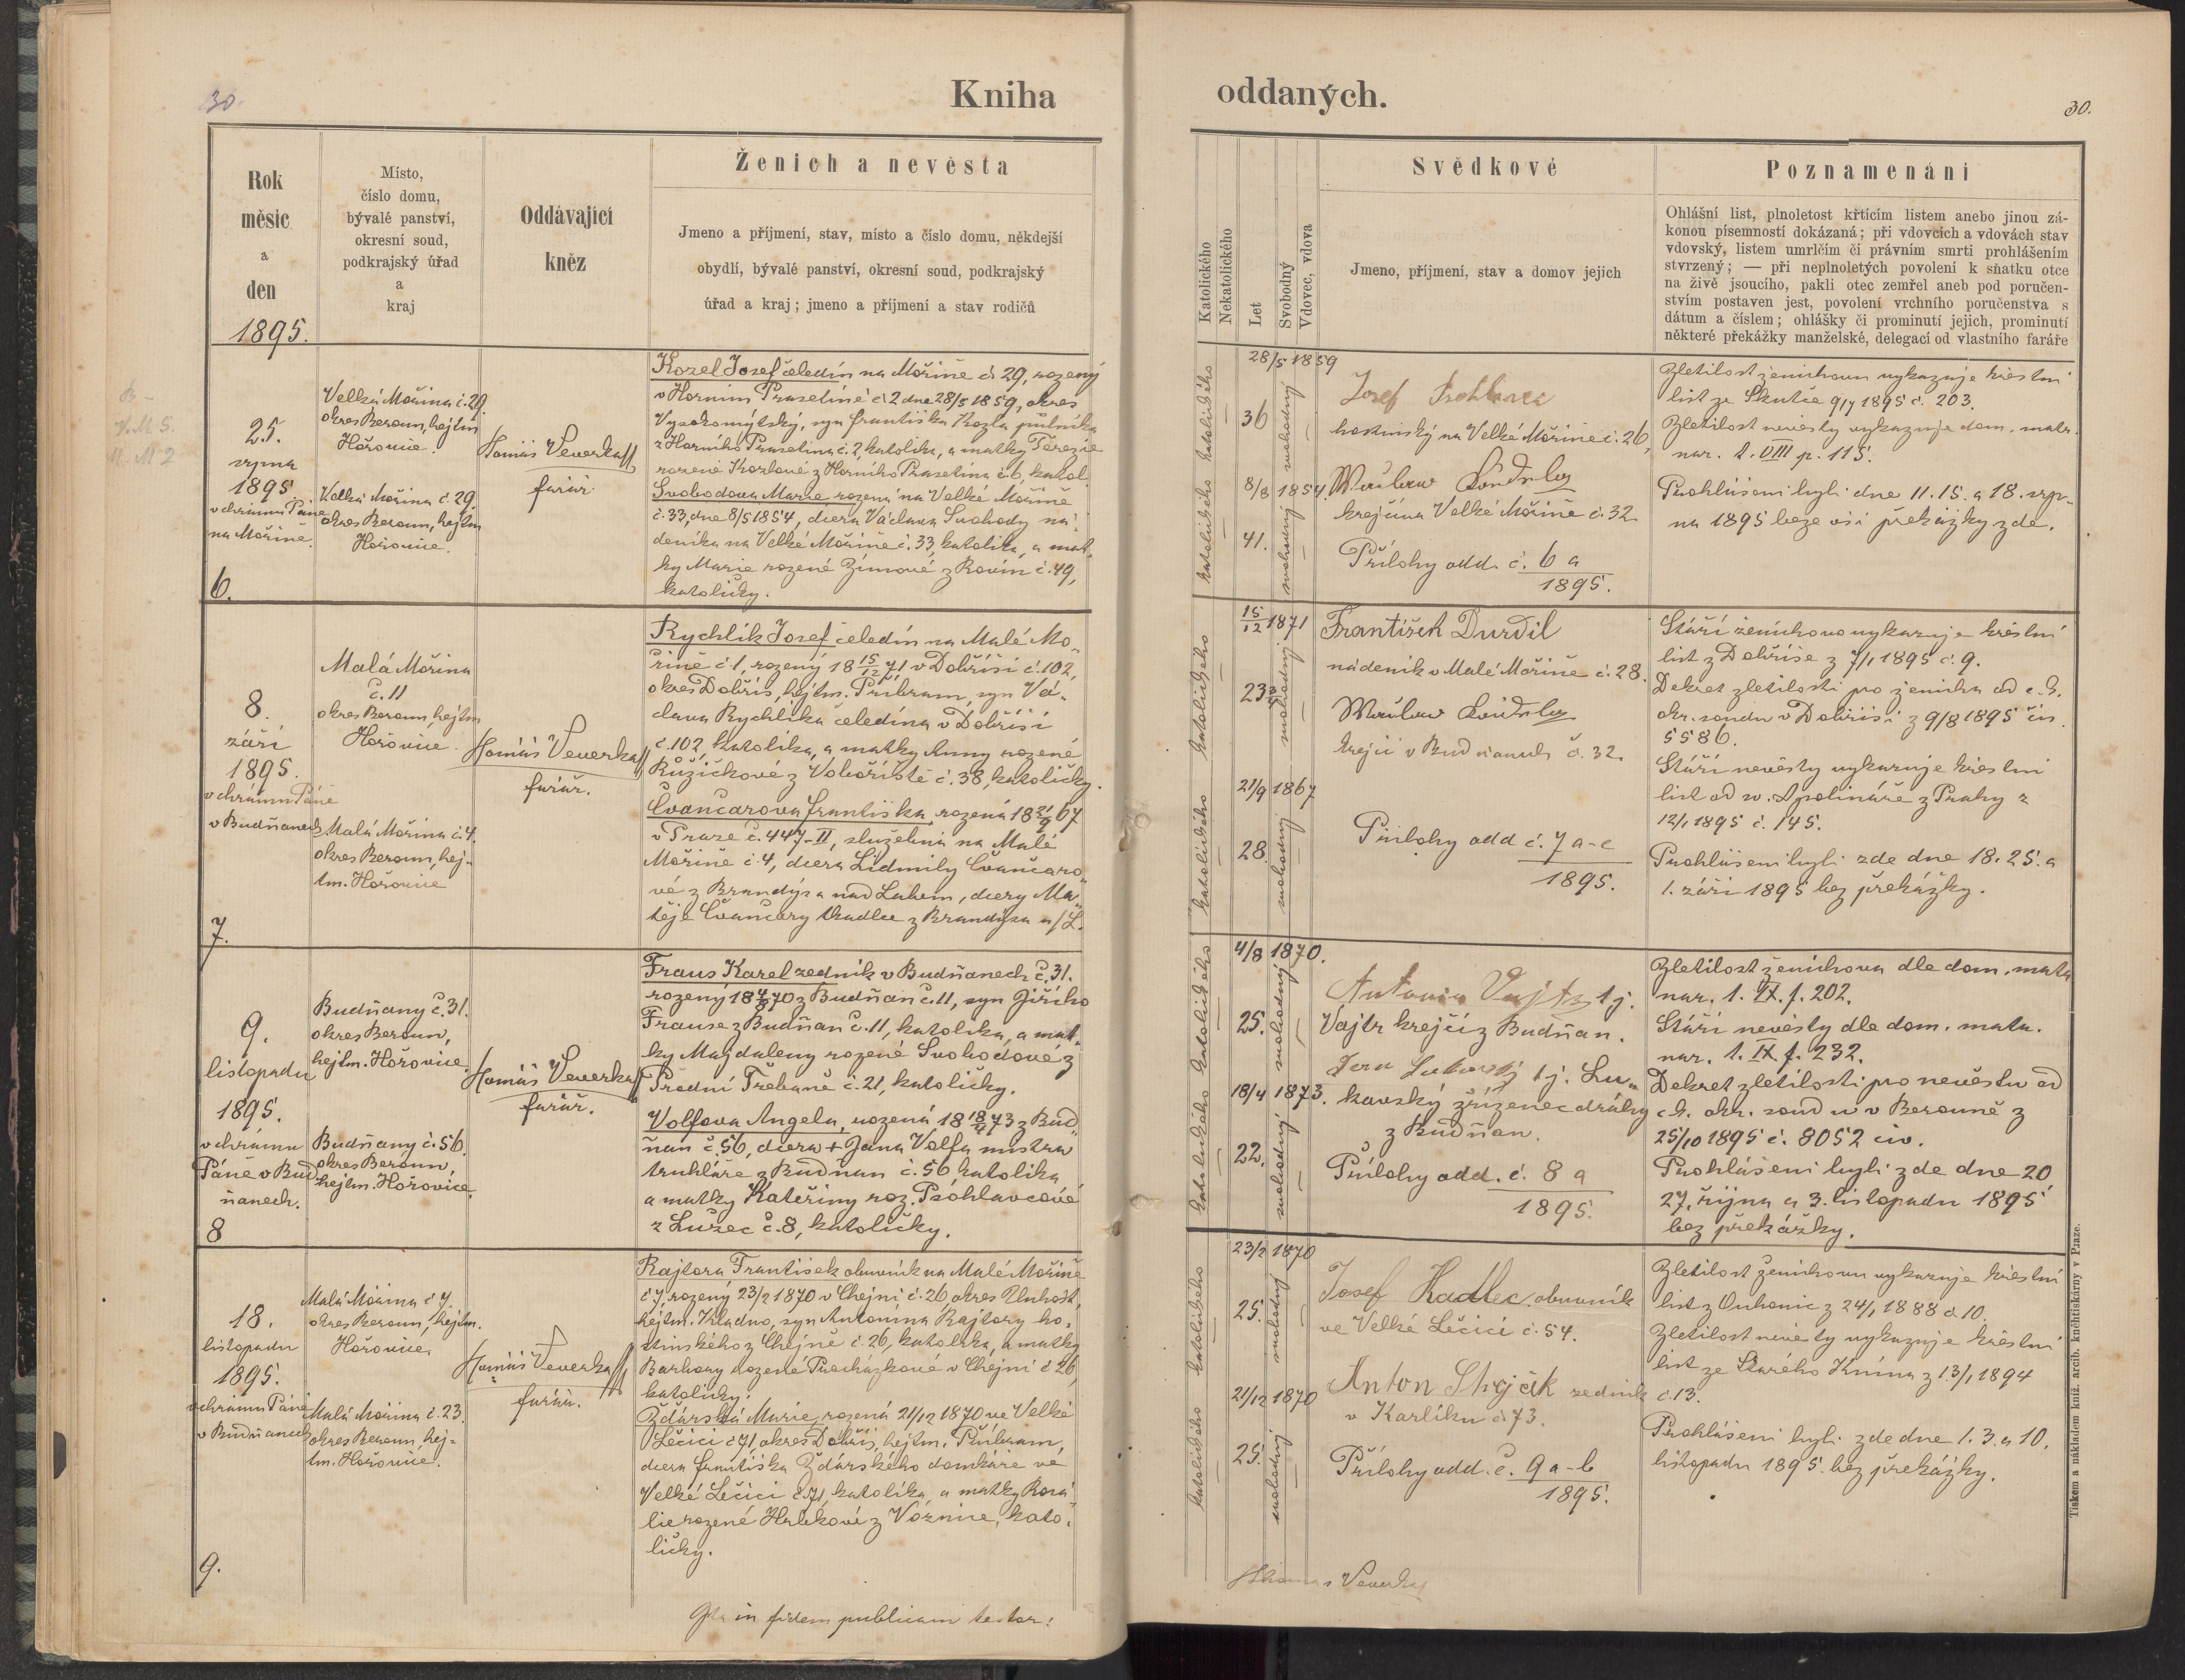 30.
Kniha
Rok
měsíc
a
den
1895.
Místo,
číslo domu,
bývalé panství,
okresní soud,
podkrajský úřad
a
kraj
Oddávající
kněz
Ženich a nevěsta
Jmeno a příjmení, stav, místo a číslo domu, někdejší
obydlí, bývalé panství, okresní soud, podkrajský
úřad a kraj; jmeno a příjmení a stav rodičů
25.
srpna
1895
v chrámu Páně
na Mořině.
6.
Velká Mořina č. 29.
okres Beroun, hejtm
Hořovice.
Velká Mořina č. 29.
okres Beroun, hejtm
Hořovice.
Tomáš Veverka
farář.
Kozel Josef čeledín na Mořině č. 29, rozený
v Horním Prasetíně č 2 dne 28/5 1859, okres
Vysokomýtský, syn Františka Kozla půlníka
z Horního Prasetína č. 2, katolíka, a matky Terezie
rozené Kozlové z Horního Prasetína č. 6, katol.
Svobodova Marie rozená na Velké Mořině
č. 33, dne 8/5 1854, dcera Václava Svobody ná-
deníka na Velké Mořině č. 33, katolíka, a mat-
ky Marie rozené Zímové z Rovin č. 49,
katoličky.
8.
září
1895.
v chrámu Páně
v Budňanech
7.
Malá Mořina
č. 11
okres Beroun, hejtm
Hořovice.
Malá Mořina č. 4.
okres Beroun, hej-
tm. Hořovice
Tomáš Veverka
farář.
Rychlík Josef čeledín na Malé Mo-
řině č 1, rozený 18 15/12 71 v Dobříši č. 102,
okres Dobříš, hejtm. Příbram, syn Vá-
clava Rychlíka čeledína v Dobříši
č. 102, katolíka, a matky Anny rozené
Růžičkové z Voborišťě č. 38, katoličky.
Čvančarova Františka, rozená 18 21/9 67
v Praze č. 447-II, služebná na Malé
Mořině č. 4, dcera Lidmily Čvančaro-
vé z Brandýsa nad Labem, dcery Ma-
těje Čvančary tkadlce z Brandýsa n/L.
9.
listopadu
1895.
v chrámu
Páně v Bud-
ňanech.
8
Budňany č. 31.
okres Beroun,
hejtm. Hořovice.
Budňany č. 56.
okres Beroun,
hejtm. Hořovice.
Tomáš Veverka
farář.
Fraus Karel zedník v Budňanech č. 31.
rozený 18 4/8 70 z Budňan č. 11, syn Jiřího
Frause z Budňan č. 11, katolíka, a mat-
ky Majdaleny rozené Svobodové z
Přední Třebaně č. 21, katoličky.
Volfova Angela, rozená 18 18/4 73 z Bud-
ňan č. 56, dcera + Jana Volfa mistra
truhláře z Budňan č. 56 katolíka
a matky Kateřiny roz. Psohlavcové
z Lužec č. 8, katoličky.
18.
listopadu
1895.
v chrámu Páně
v Budňanech
9.
Malá Mořina č 7.
okres Beroun, hejtm.
Hořovice.
Malá Mořina č. 23.
okres Beroun, hej-
tm. Hořovice.
Tomáš Veverka
farář.
Rajtora František obuvník na Malé Mořině
č 7, rozený 23/2 1870 v Chejni č. 26, okres Unhošt,
hejtm. Kladno, syn Antonína Rajtory ho-
stinského z Chejně č. 26, katolíka, a matky
Barbory rozené Procházkové v Chejni č 26,
katoličky.
Žďárská Marie, rozená 21/12 1870 ve Velké
Lečici č 71, okres Dobříš, hejtm. Příbram,
dcera Františka Žďárského domkáře ve
Velké Lečici č. 71, katolíka, a matky Rosa-
lie rozené Hrbkové z Voznice, kato-
ličky.
Ita in fidem publicam testor:
oddaných.
30.
Katolického
Nekatolického
Let
Svobodný
Vdovec, vdova
Svědkové
Jmeno, příjmení, stav a domov jejich
Poznamenání
Ohlášní list, plnoletost křticím listem anebo jinou zá-
konou písemností dokázaná; při vdovcích a vdovách stav
vdovský, listem umrlčím či právním smrti prohlášením
stvrzený; — při neplnoletých povolení k sňatku otce
na živě jsoucího, pakli otec zemřel aneb pod poručen-
stvím postaven jest, povolení vrchního poručenstva s
dátum a číslem; ohlášky či prominutí jejich, prominutí
některé překážky manželské, delegací od vlastního faráře
katolického
katolického
28/5 1859
36
svobodný
8/8 1854.
41.
svobodný
Josef
hostinský na Velké Mořině č. 26,
Václav
krejčí na Velké Mořině č. 32.
Přílohy odd. č. 6 a
1895.
Zletilost ženichovu vykazuje křestní
list ze Skutče 9/7 1895 č. 203.
Zletilost nevěsty vykazuje dom. matr.
nar. 1. VIII p. 115.
Prohlášeni byli dne 11. 15. a 18. srp-
na 1895 beze vší překážky zde.
katolického
katolického
15/12 1871
23 3/4
svobodný
21/9 1867
28.
svobodný
František Durdil
nádeník v Malé Mořině č. 28.
Václav
krejčí v Budňanech č. 32.
Přílohy odd č. 7 a-c
1895.
Stáří ženichovo vykazuje křestní
list z Dobříše z 7/1 1895 č. 9.
Dekret zletilosti pro ženicha od c. k.
okr. soudu v Dobříši z 9/8 1895 čís
5586.
Stáří nevěsty vykazuje křestní
list od sv. Apolináře z Prahy z
12/1 1895 č. 145.
Prohlášeni byli zde dne 18. 25. a
1. září 1895 bez překážky.
katolického
katolického
4/8 1870.
25.
svobodný
18/4 1873.
22.
svobodný
Antonín Vajtr t. j.
Vajtr krejčí z Budňan.
t. j. Lu-
kavský zřízenec dráhy
z Budňan.
Přílohy odd. č. 8 a
1895.
Zletilost ženichova dle dom. matr.
nar. 1. IX. f. 202.
Stáří nevěsty dle dom. matr.
nar. 1. IX f. 232.
Dekret zletilosti pro nevěstu od
c. k. okr. soudu v Berouně z
25/10 1895 č. 8052 civ.
Prohlášeni byli zde dne 20
27. října a 3. listopadu 1895
bez překážky.
katolického
katolického
23/2 1870
25.
svobodný
21/12 1870
25.
svobodný
Josef Hadlec obuvník
ve Velké Lečici č. 54.
Anton Strejček zedník
v Karlíku č 73.
Přílohy odd. č. 9 a-b
1895.
Zletilost ženichovu vykazuje křestní
list z Ouhonic z 24/1 1888 č 10.
Zletilost nevěsty vykazuje křestní
list ze Starého Knína z 13/1 1894
č. 13.
Prohlášeni byli zde dne 1. 3. a 10.
listopadu 1895. bez překážky.
Thomas Veverka
Tiskem a nákladem kníž. arcib. knihtiskárny v Praze.